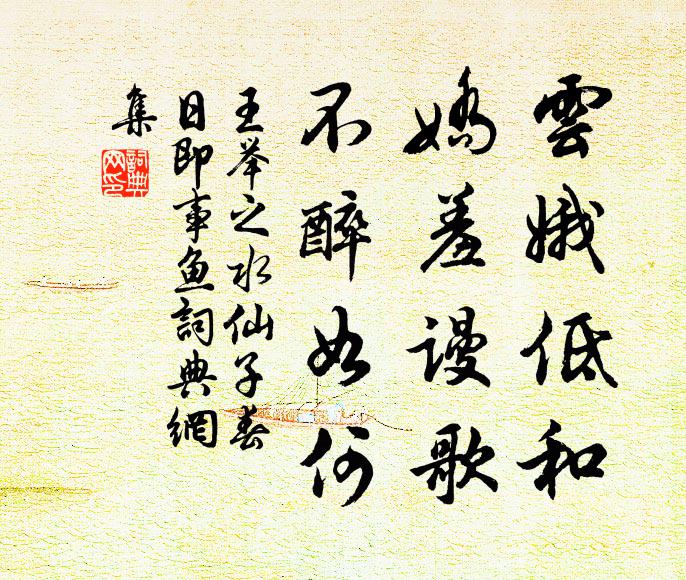 雲娥低和
嬌羞謾歌
不醉如何
王举之水仙子春
日即事鱼詞典網
集
詞典网印